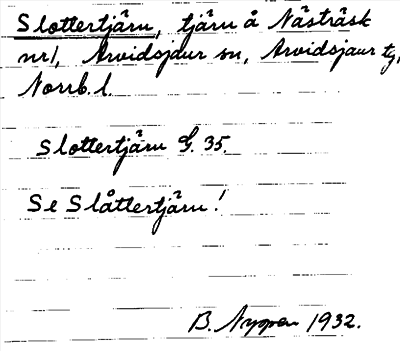 Slottertjärn, tjärn å Nästräsk
nr 1, Arvidsjaur sn, Arvidsjaur tg,
Norrb. l.
Slottertjärn G. 35.
Se Slåttertjärn!
B. Nyman 1932.